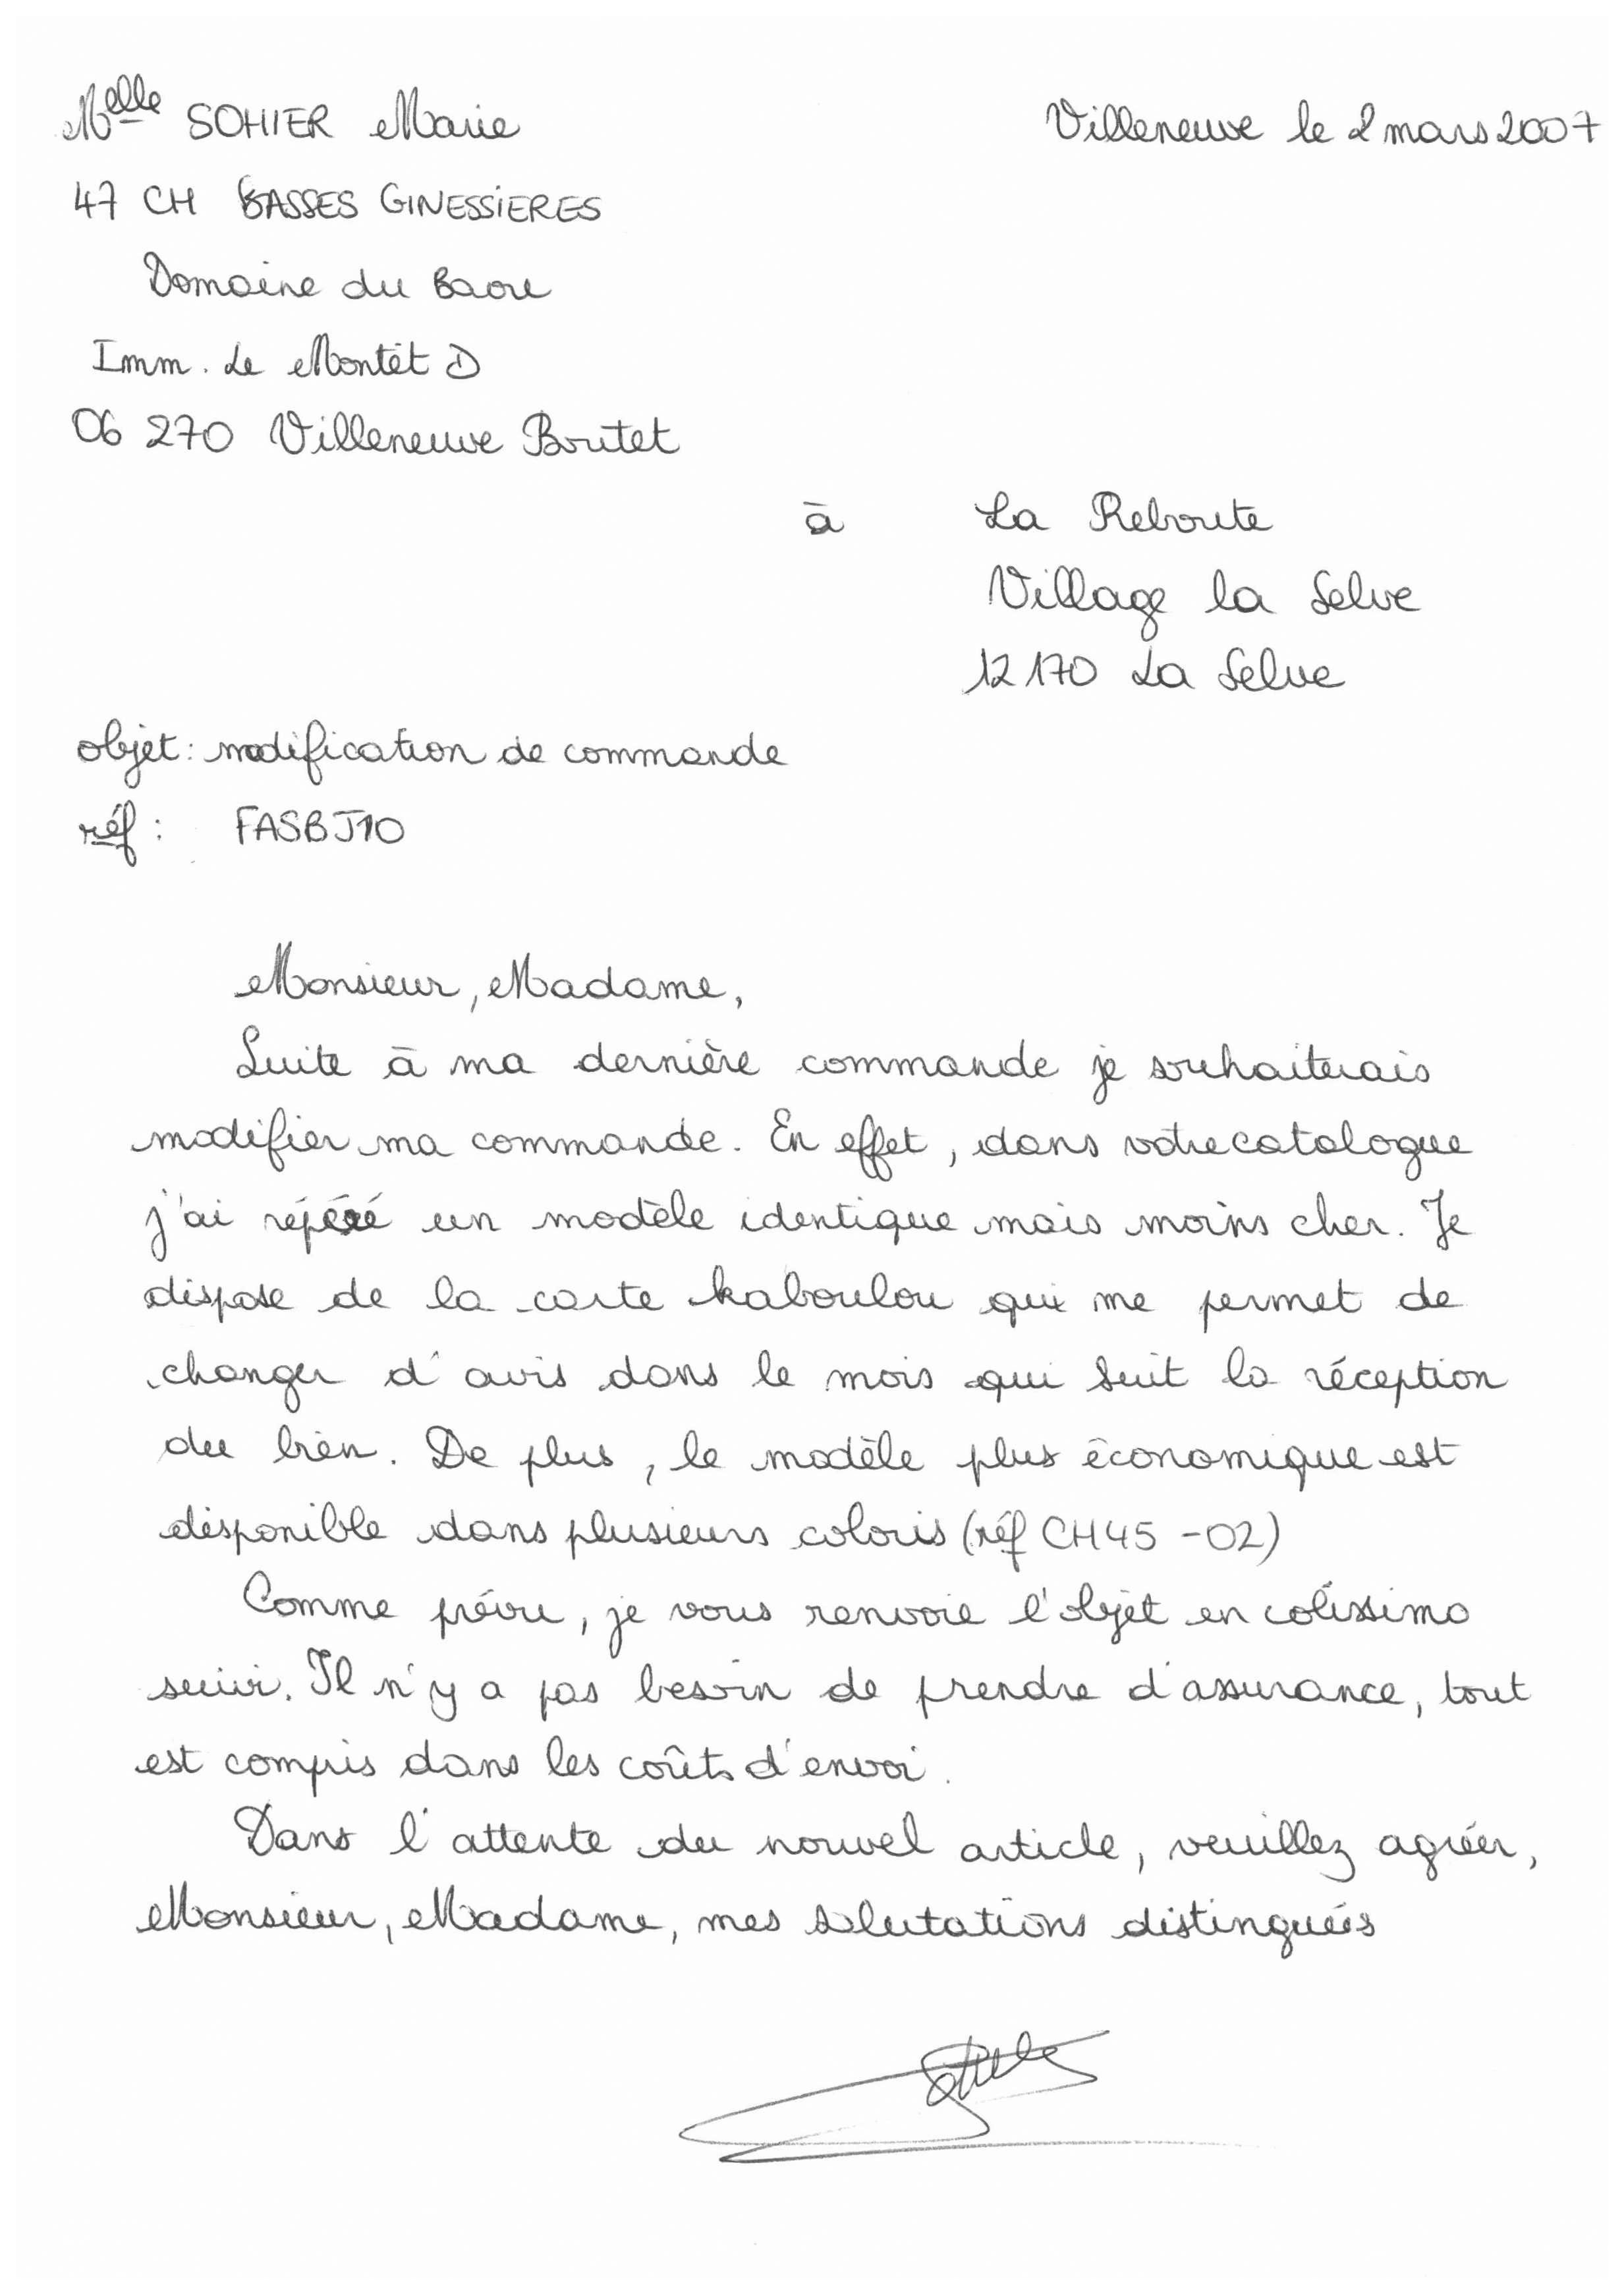 Melle SOHIER Marie
Villeneuve le 2 mars 2007
47 CH BASSES GINESSIERES
Domaine du Baou
Imm. Le Montet D
06 270 Villeneuve Boutet
à La Reboute
Village la Selve
12 170 La Selve
objet : modification de commande
réf : FASBJ10
Monsieur, Madame,
Suite à ma dernière commande je souhaiterais
modifier ma commande. En effet, dans votre catalogue
j'ai repéré un modèle identique mais moins cher. Je
dispose de la carte kaboulou qui me permet de
changer d'avis dans le mois qui suit la réception
du bien. De plus, le modèle plus économique est
disponible dans plusieurs coloris (réf CH45 -02)
Comme prévu, je vous renvoie l'objet en colissimo
suivi. Il n'y a pas besoin de prendre d'assurance, tout
est compris dans les coûts d'envoi.
Dans l'attente du nouvel article, veuillez agréer,
Monsieur, Madame, mes salutations distinguées